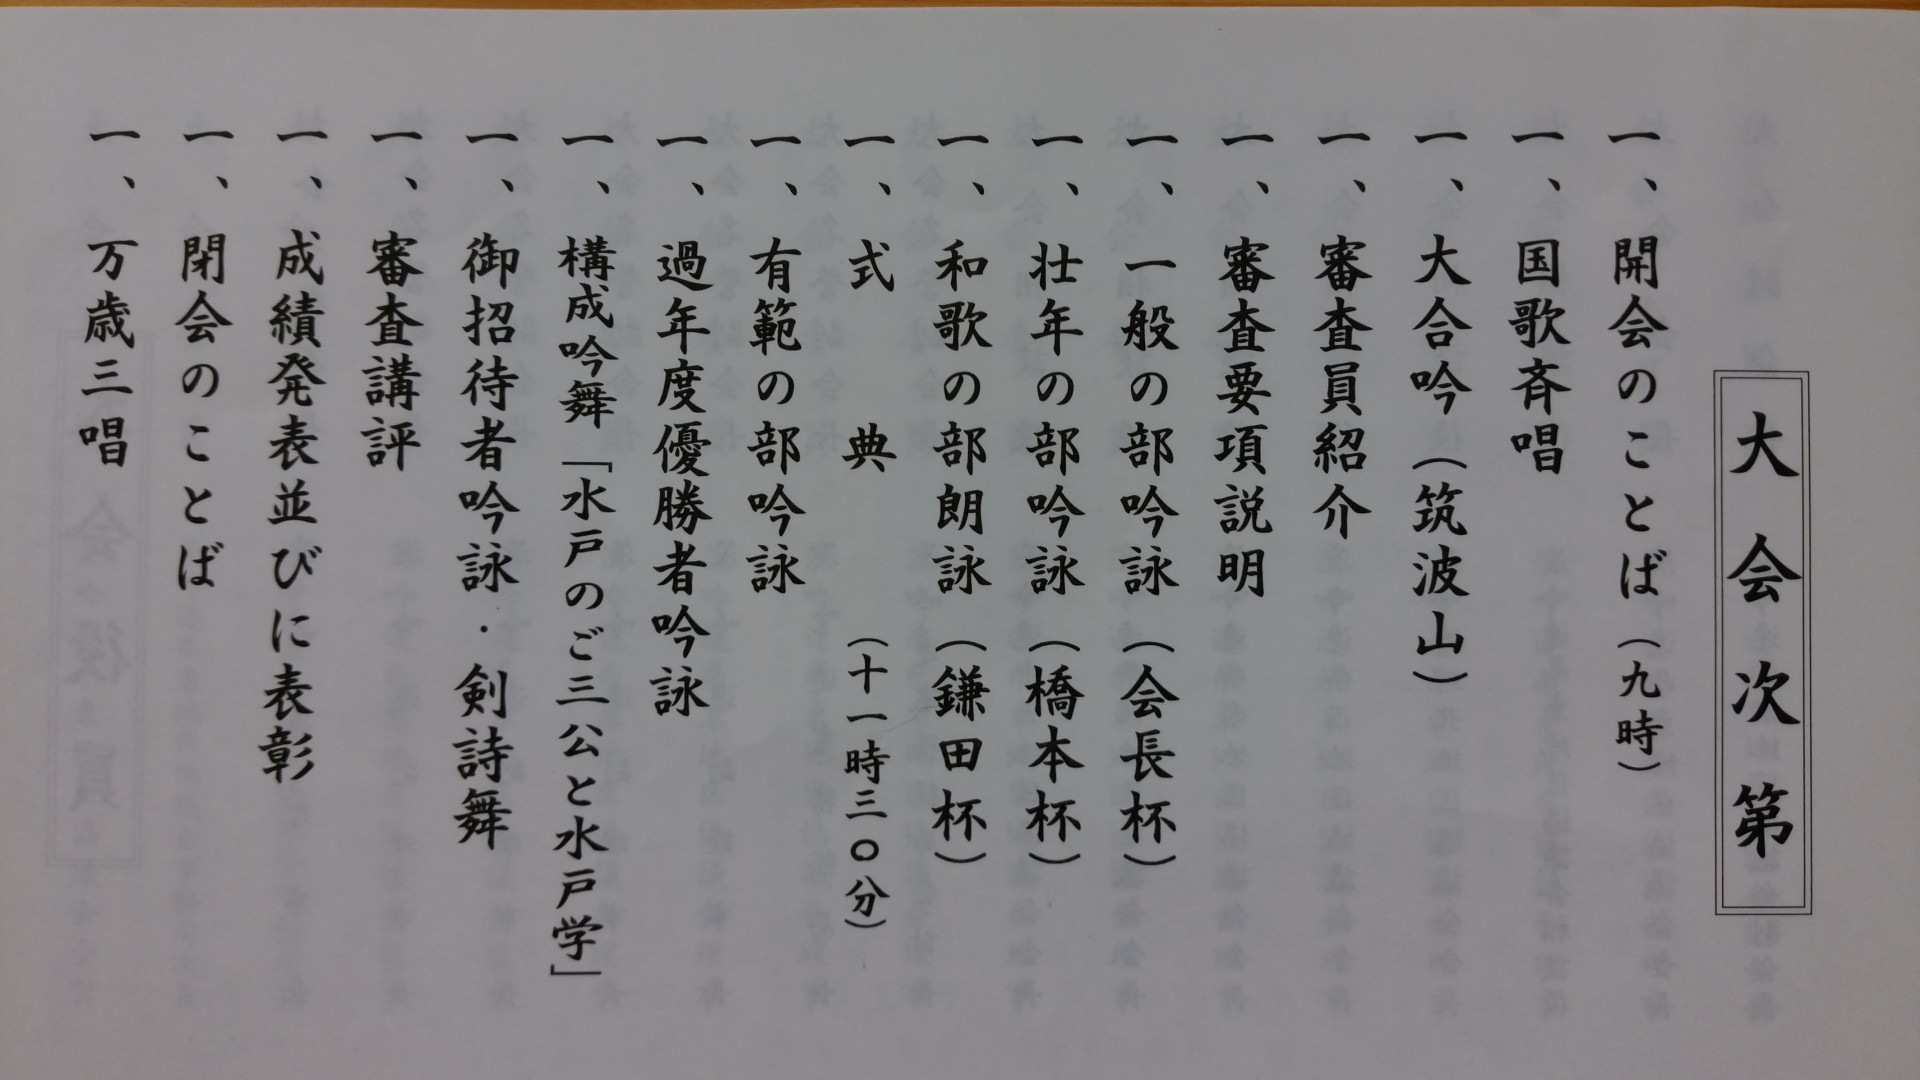 大会次第
一、開会のことば（九時）
一、国歌斉唱
一、大合吟（筑波山）
一、審査員紹介
一、審査要項説明
一、一般の部吟詠（会長杯）
一、壮年の部吟詠（橋本杯）
一、和歌の部朗詠（鎌田杯）
一、式　典　（十一時三〇分）
一、有範の部吟詠
一、過年度優勝者吟詠
一、構成吟舞「水戸のご三公と水戸学」
一、御招待者吟詠・剣詩舞
一、審査講評
一、成績発表並びに表彰
一、閉会のことば
一、万歳三唱